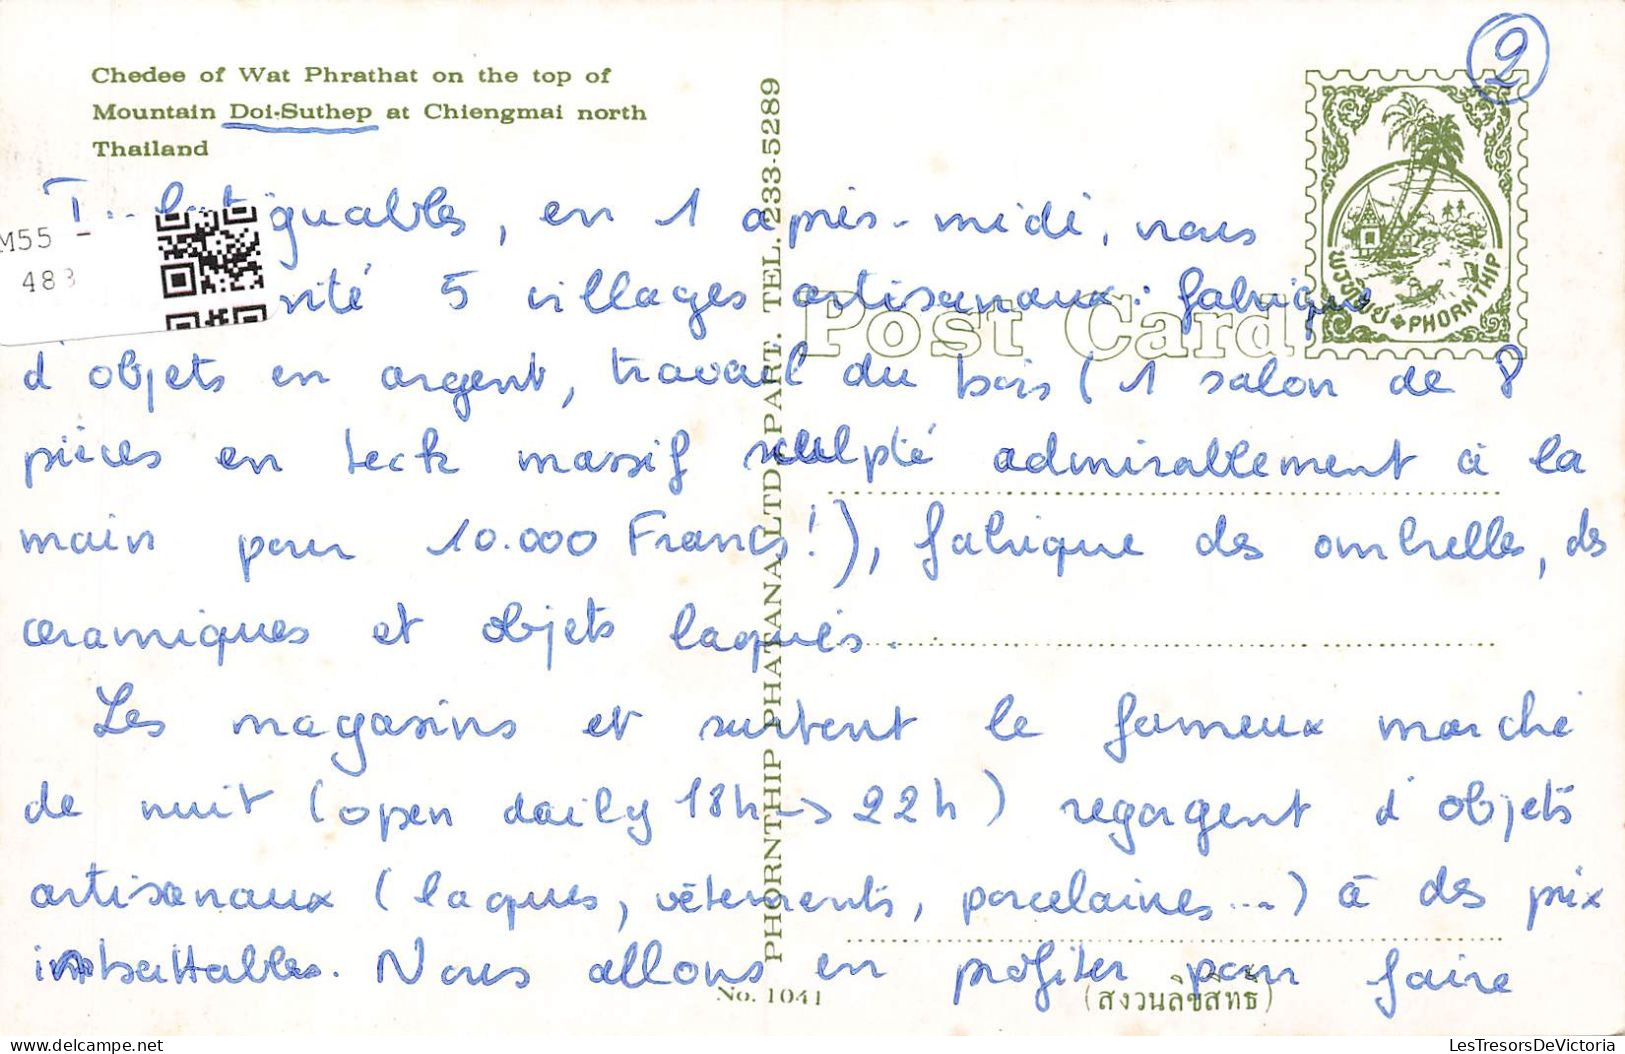 Chedee of Wat Phrathat on the top of
Mountain Doi-Suthep at Chiengmai north
Thailand
2
PHORNTHIP PHATANA,LTD.PART. TEL. 233-5289
Post Card
พรทิพย์ PHORNTHIP
M55 -
483
en 1 après-midi, nous
5 villages artisanaux : fabrique
d'objets en argent, travail du bois (1 salon de 8
pièces en teck massif sculpté admirablement à la
main pour 10.000 Francs !), fabrique des ombrelles, des
ceramiques et objets laqués.
Les magasins et surtout le fameux marché
de nuit (open daily 18h -> 22h) regorgent d'objets
artisanaux (laques, vêtements, porcelaines...) à des prix
imbattables. Nous allons en profiter pour faire
No. 1041
(สงวนลิขสิทธิ์)
LesTresorsDeVictoria
delcampe.net